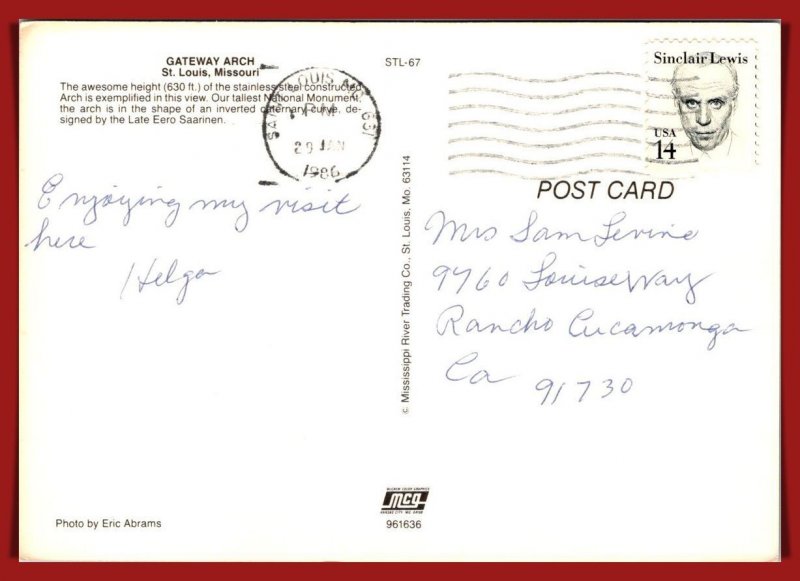 GATEWAY ARCH
St. Louis, Missouri
The awesome height (630 ft.) of the stainless steel constructed
Arch is exemplified in this view. Our tallest National Monument,
the arch is in the shape of an inverted caternary curve, de-
signed by the Late Eero Saarinen.
STL-67
LOUIS MO 631
PM
29 JAN
1986
Sinclair Lewis
USA
14
POST CARD
Enjoying my visit
here
Helga
Mrs Sam Levine
9760 Louise Way
Rancho Cucamonga
Ca 91730
© Mississippi River Trading Co., St. Louis, Mo. 63114
Photo by Eric Abrams
mcg
961636